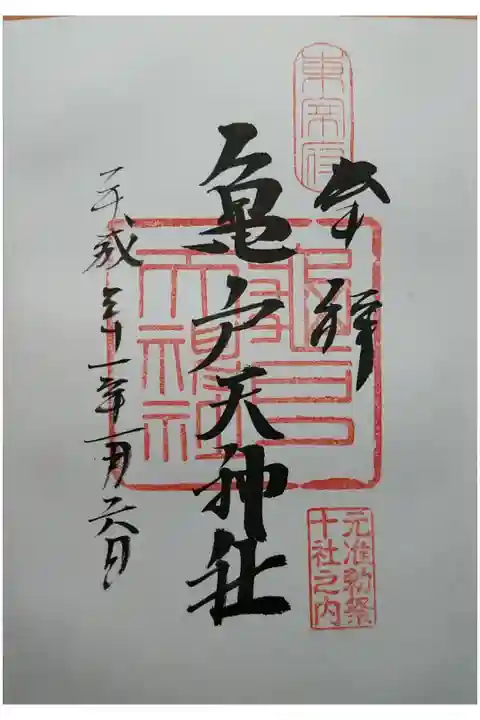 東宰府
奉拝
亀戸天神社
亀戸
天神社
平成三十一年一月六日
元准勅祭
十社之内